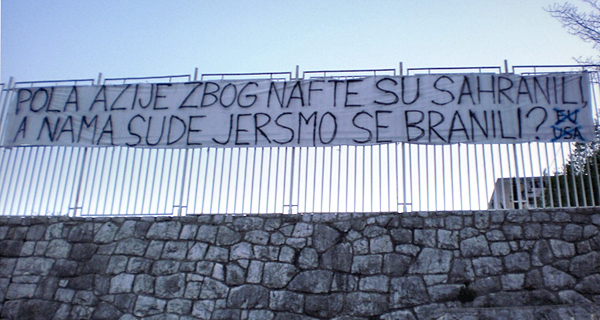 POLA AZIJE ZBOG NAFTE SU SAHRANILI,
A NAMA SUDE JERSMO SE BRANILI? EU
USA